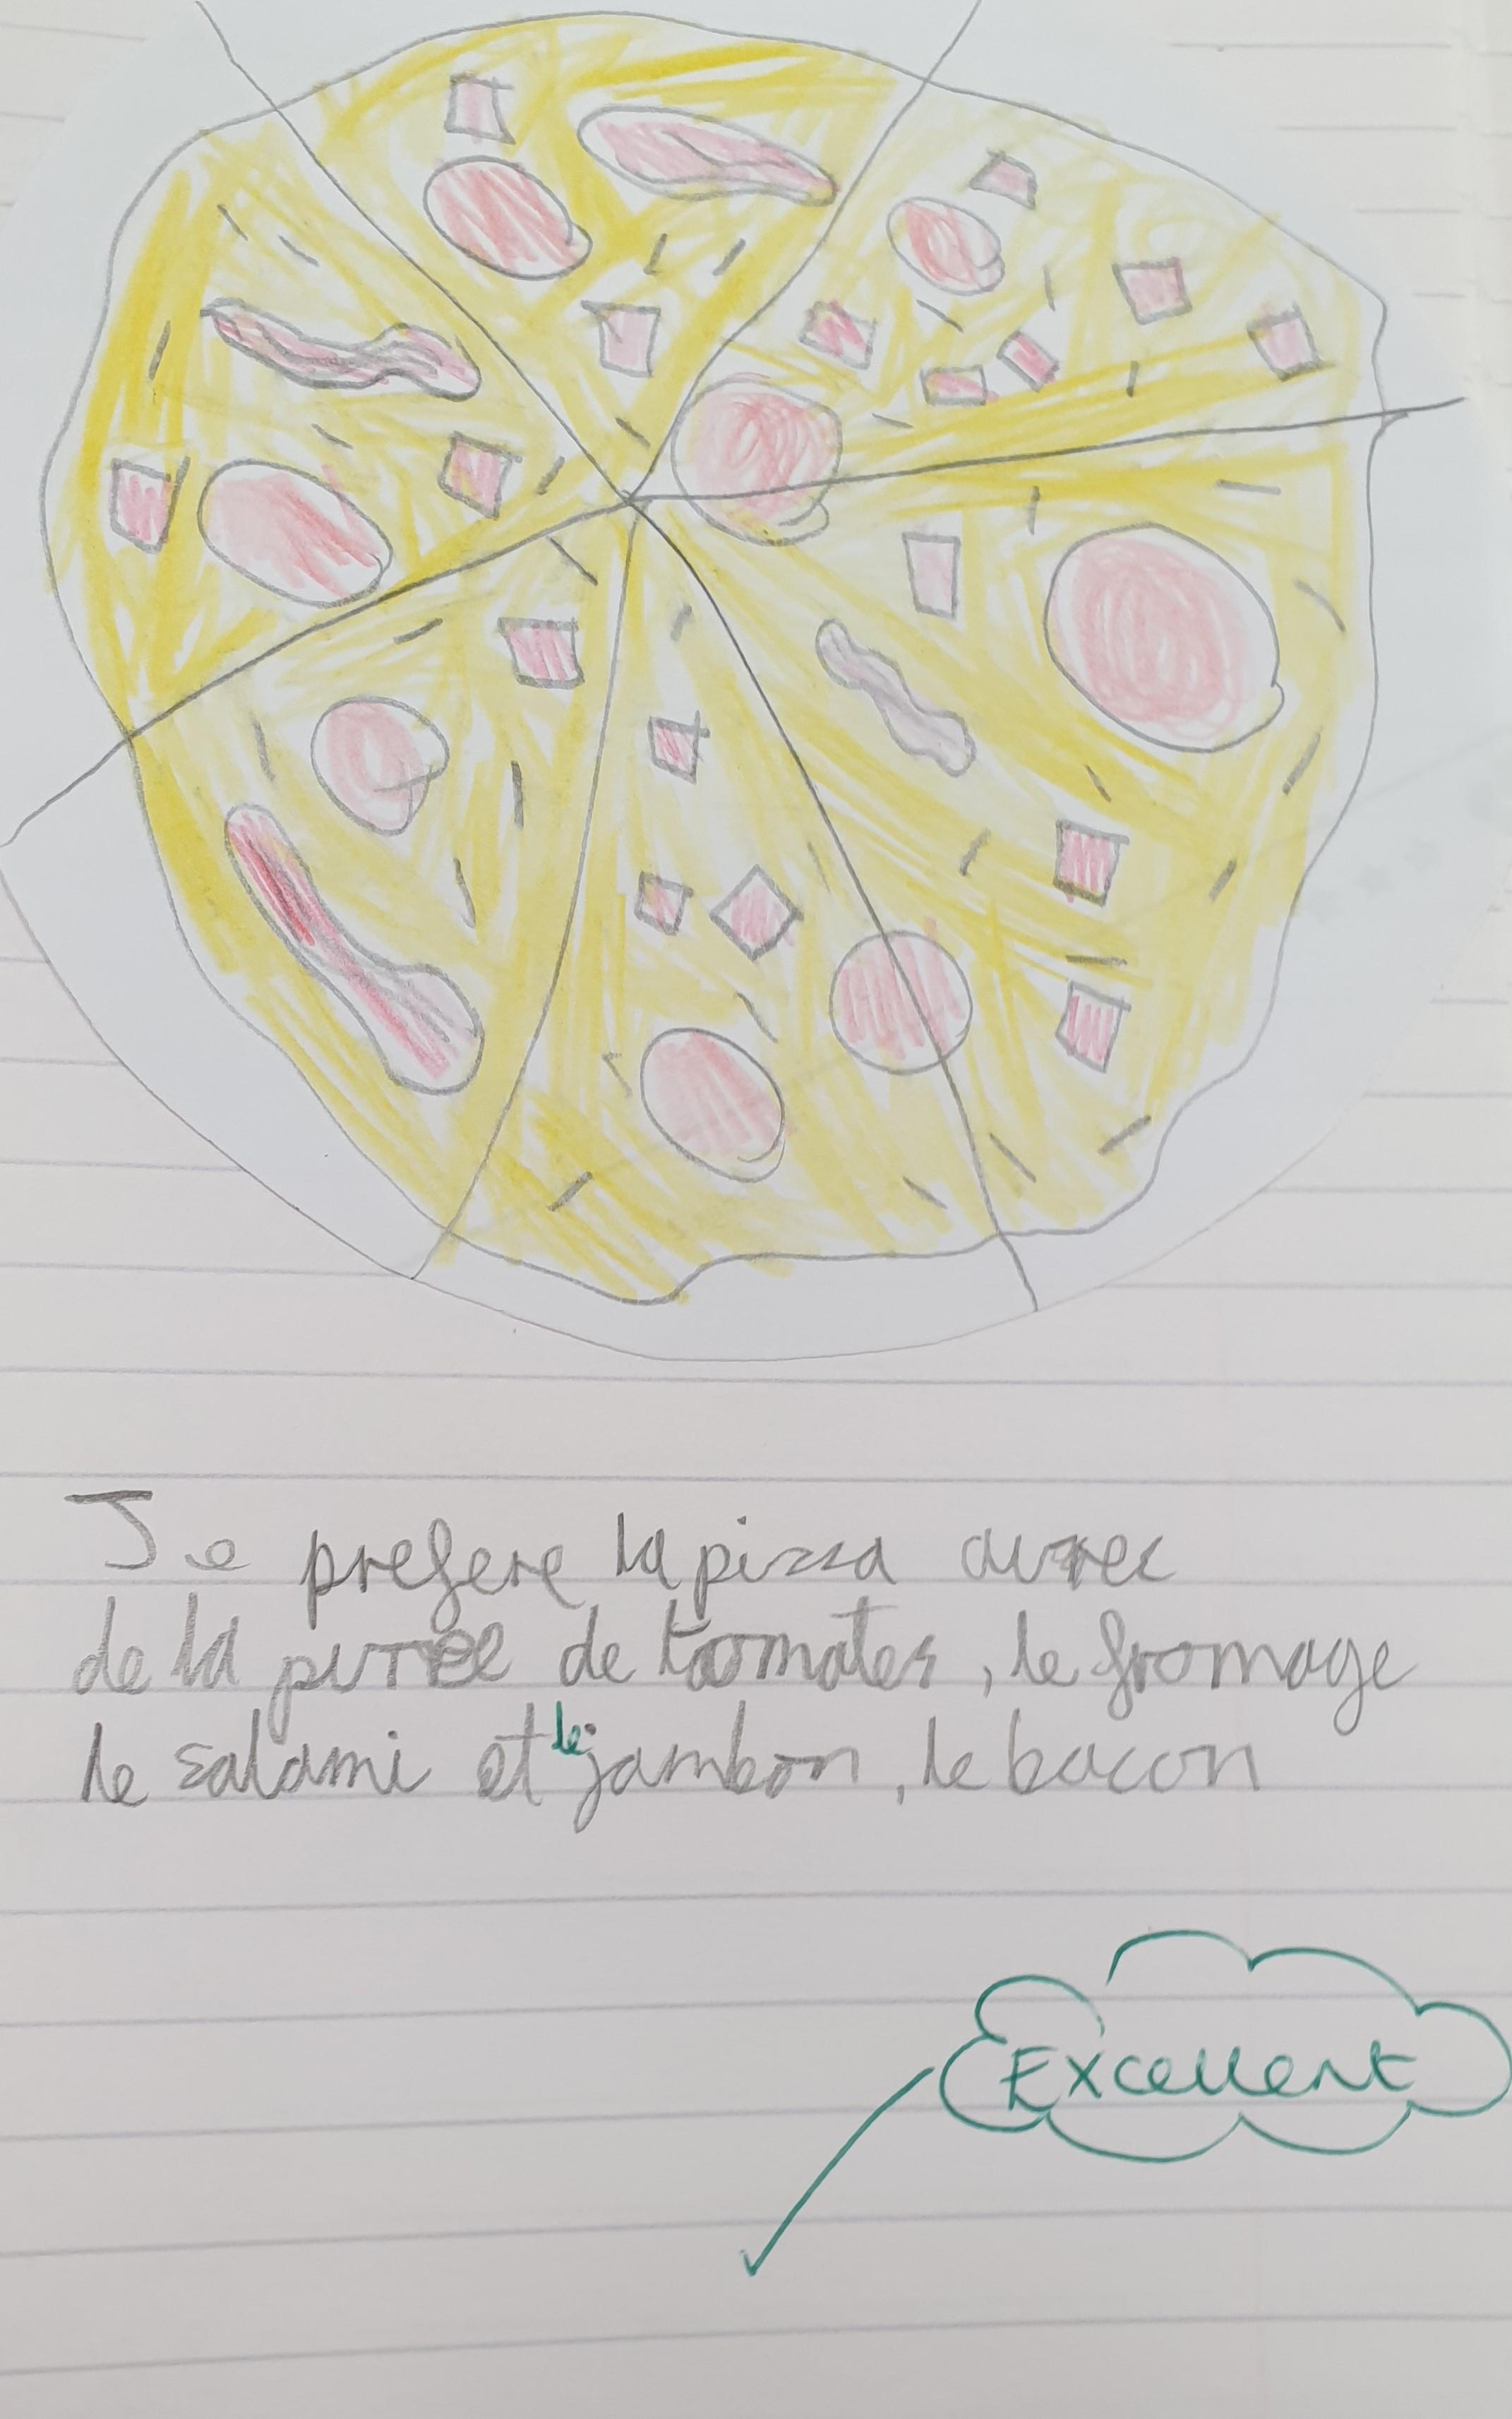 Je prefere la pizza avec
de la puree de toomates, le fromage
le salami et le jambon, le bacon
Excellent